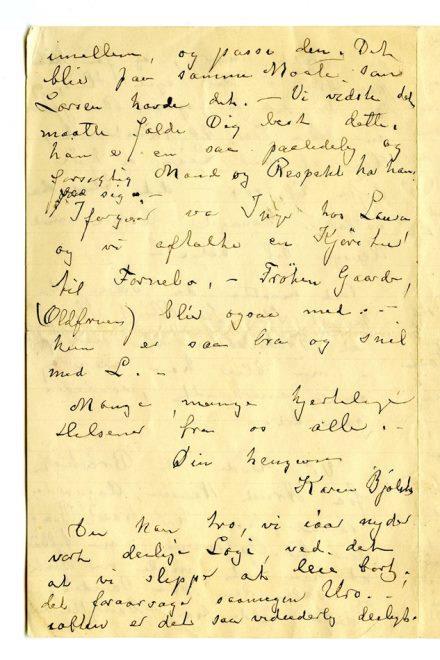 imellem, og passe den. Det
blir paa samme Maate som
Larsen havde det. — Vi vidste det
maatte falde Dig best dette,
han er en saa paalidelig og
forsigtig Mand og Respekt har han
paa sig. —
Iforgaar va Inga hos Laura
og vi aftalte en Kjøretur
til Fornebo, — Frøken Gaarder,
(Oldfruen) blir ogsaa med. —
hun er saa bra og snil
med L. —
Mange, mange hjertelige
Hilsener fra os alle. —
Din hengivne
Karen
Du kan tro, vi iaar nyder
vort deilige Logi, ved det
at vi slipper at leie bort.
det foraarsager saamegen Uro. —
er det saa vidunderlig deiligt.